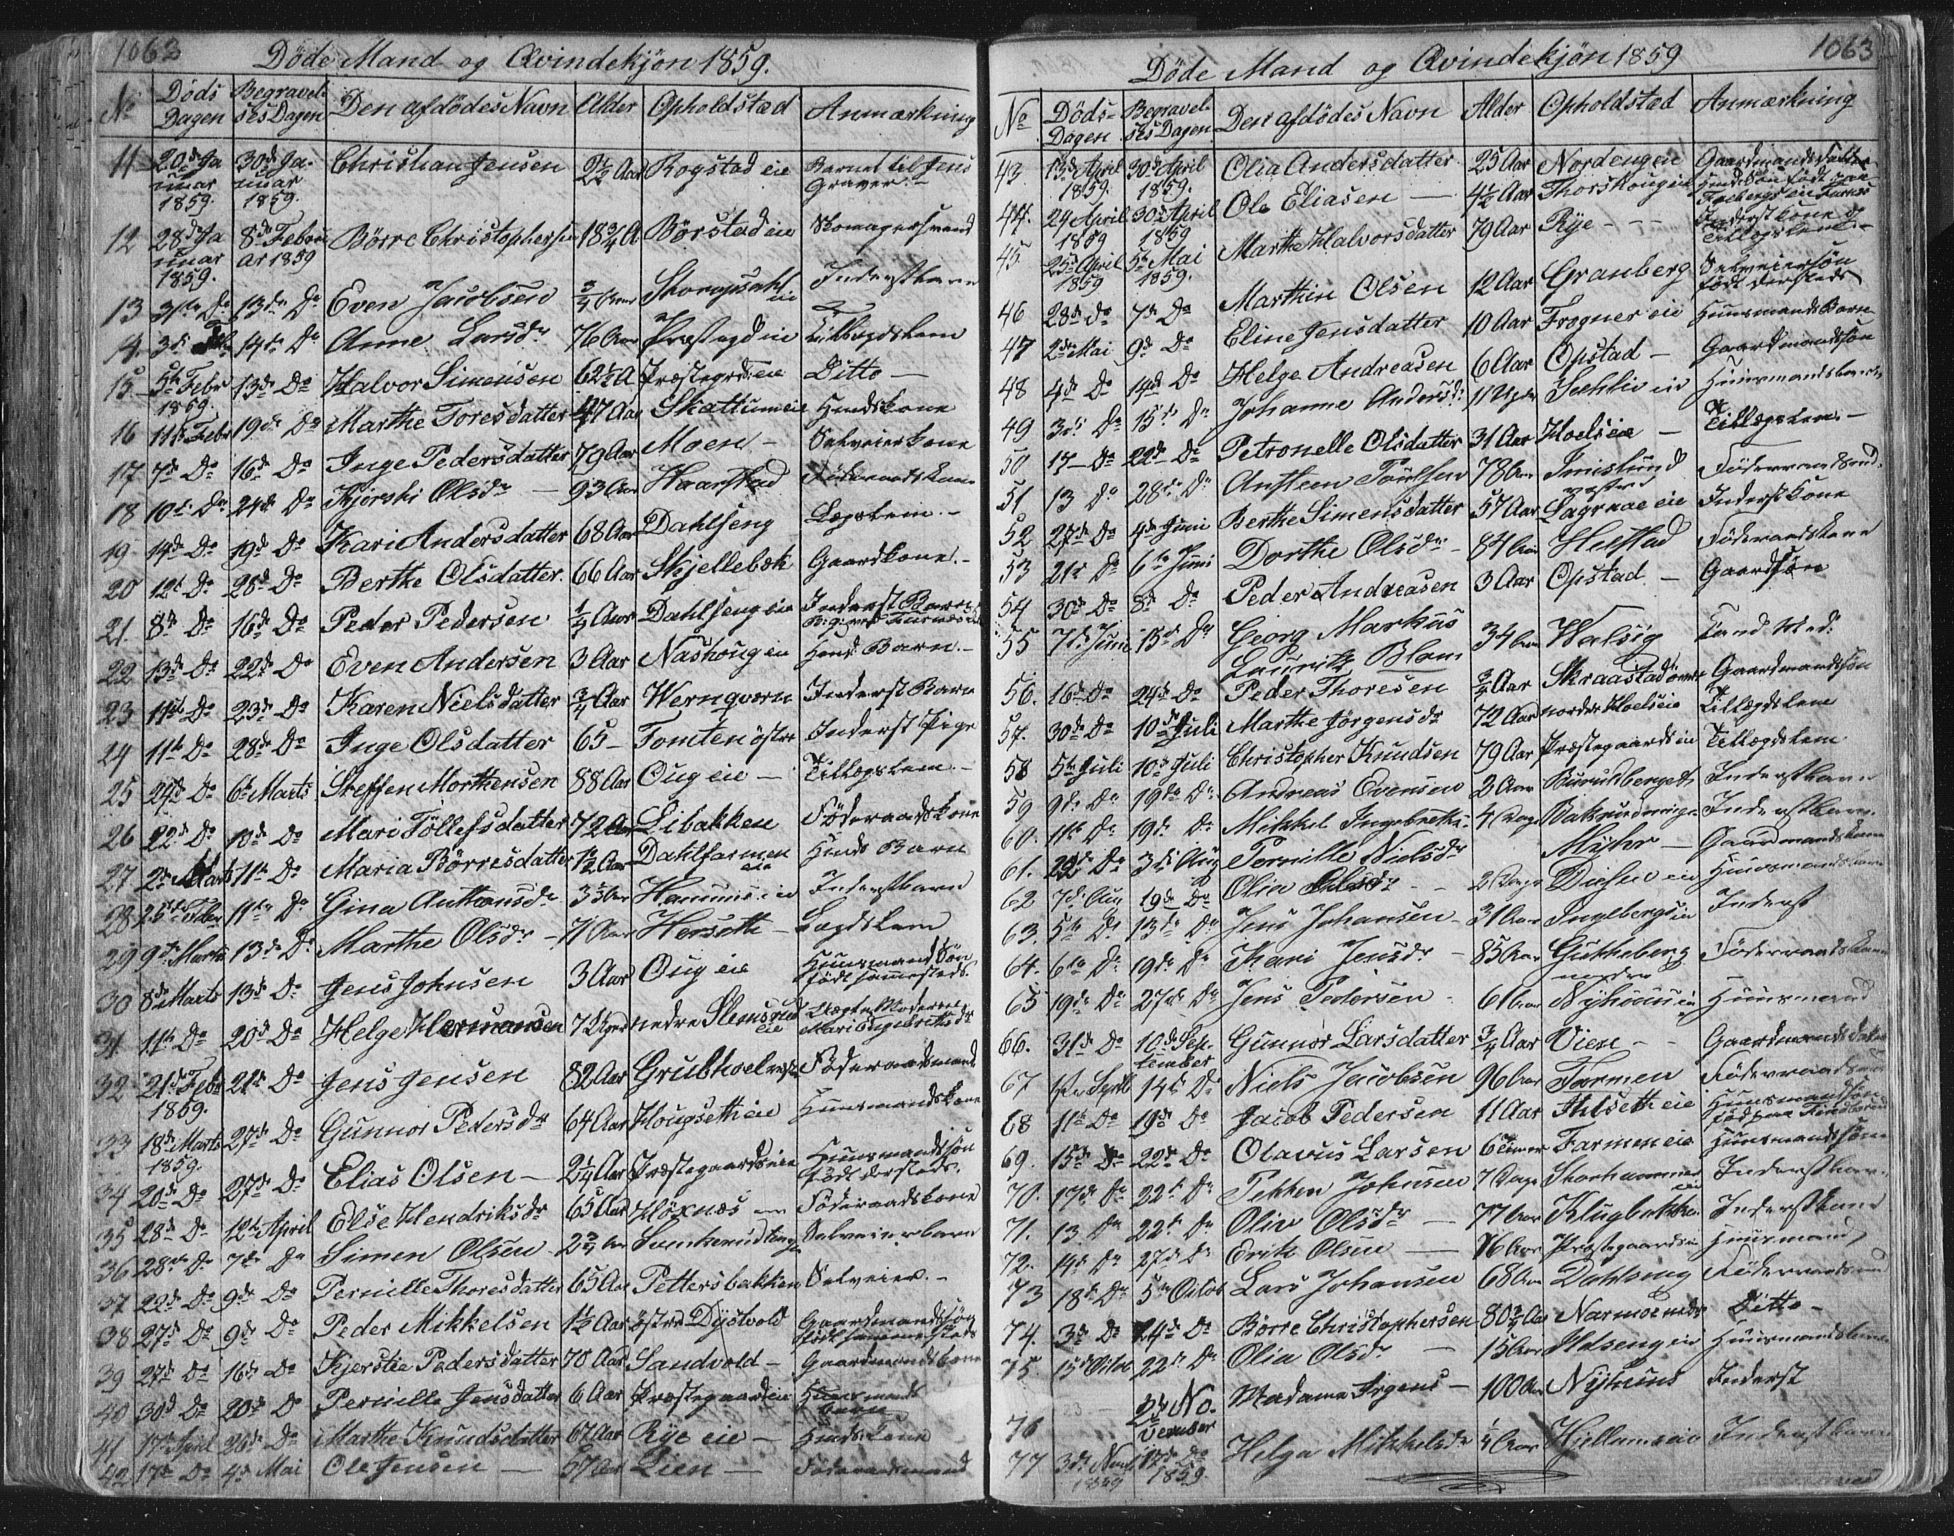 1062
Döde Mand og Qvindekjön 1859.
No Döds Dagen Begravelsesdagen Den afdödes Navn Alder Opholdsted Anmærkning
11 20de Januar 1859. 30de Januar 1859. Christian Jensen 2½ Aar Rogstad eie Barnet til Jens Graver.
12 28de Januar 1859. 8de Februar 1859 Börre Christophersen 18¾ A Börstad eie Skomagersvend
13 31te Do 13de Do Even Jacobsen ¾ Aar Inderstbarn
14. 3de Feb. 14de Do Anne Larsdr 76 Aar Præstegd eie Tillægslem
15 5te Febr 1859. 13de Do Halvor Simensen 62½ A Præstegrd eie Ditto
16 11te Febr 19de Do Marthe Toresdatter 47 Aar Skattumeie Huuskone
17 7de Do 16de Do Inge Pedersdatter 79 Aar Moen Selveierkone
18 10de Do 24de Do Kjersti Olsdr 93 Aar Haarstad Föderaadskone
19 14de Do 19de Do Kari Andersdatter 68 Aar Dahlseng Lægslem.
20 12te Do 28de Do Berthe Olsdatter. 66 Aar Skjellebæk Gaardkone.
21. 8de Do 16de Do Peder Pedersen Aar Dahlseng eie Inderst Barn
22 13de Do 22de Do Even Andersen 3 Aar Nashoug eie Huus Barn.
23 11te Do 23de Do Karen Nielsdatter ¾ Aar Wernqværn Inderst Barn
24 11te Do 28de Do Inge Olsdatter 65 Tomten östre Inderst Pige
25 24de Do 6te Marts Steffen Morthensen 88 Aar Oug eie Tillægslem.
26 22de Do 10de Do Mari Tollefsdatter 72 Aar Libakken Föderaadskone
27 2de Marts 11te Do Maria Börresdatter 1½ Aar Dahlfarmen eie Huus Barn
28 25de Feber 11te Do Gina Anthonsdr Inderstbarn
29 9de Marts 13de Do Marthe Olsdr 71 Aar Herseth Lægdslem
30 8de Marts 13de Do Jens Johnsen 3 Aar Oug eie Huusmand Sön född sammesteds.
31 11te Do 20de Do Helge Hermansen nedre Slemsrud eie
32 21de Febr 1859. 21de Do Jens Jensen 82 Aar Grubhoel Föderaadsmand
33 18de Marts 1859. 27de Do Gunnor Pedersdr 64 Aar Hougseth eie Huusmandskone
34 20de Do 27de Do Elias Olsen 2¼ Aar Præstegaards eie Huusmandssön född dersteds.
35 28de Do 12te April Else Hendriksdr 65 Aar Hoxnæs Föderaadskone
36 28de Do 7de Do Simen Olsen Selveierbarn
37 22de Do 9de Do Pernille Thoresdatter 65 Aar Pettersbakken Selveier.
38 27de Do 9de Do Peder Mikkelsen 1½ Aar östre Dystvold Gaardmandssön
39 27de Do 16de Do Kjerstie Pedersdatter 70 Aar Sandvold Gaardmandskone
40 30de Do 20de Do Pernille Jensdatter 6 Aar Præstegaard eie Huusmands barn
41 17de April 26de Do Marthe Knudsdatter 67 Aar Rye eie Huuskone
42 17de Do 4de Mai Ole Jensen 67 Aar Lien Föderaadsmand
1063
Döde Mand og Qvindekjön 1859
No Döds-Dagen Begravelsesdagen Den afdödes Navn Alder Opholdsted Anmærkning
43. 13de April 1859. 30de April 1859. Olia Andersdatter 25 Aar Nordengen Gaardmandsdatter
44. 24 April 1859 30te April 1859 Ole Eliasen 4½ Aar Thorshoug eie
45. 25de April 1859 5te Mai 1859. Marthe Halvorsdatter 79 Aar Rye Inderstkone og Tillægslem.
46 28de Do 7de Do Marthin Olsen 12 Aar Granberg Selveiersön född dersteds
47 2den Mai 9de Do Eline Jensdatter 10 Aar Frogner eie Huusmands Barn
48 4de Do 14de Do Helge Andreasen 6 Aar Opstad Gaardmandsön
49 3de Do 15de Do Johanne Andersdr 11 Uger Huusmandsbarn
50 17 Do 22de Do Petronelle Olsdatter 31 Aar Hoelseie Tillægslem.
51 13 Do 28de Do 78 Aar Imislund Föderaadsmd.
52 27de Do 4de Juni Berthe Simensdatter 57 Aar Inderstkone
53 21de Do 6te Juni Dorthe Olsdr 84 Aar Föderaadskone
54 30de Do 8de Do Peder Andreasen 3 Aar Opstad Gaardsön
55 7de Juni 15de Do Georg Markus Lauritz Blom 34 Aar Walsög Cand Med:
56. 16de Do 24de Do Peder Thoresen ¾ Aar Skraastad Gaardmandssön
57. 30de Do 10de Juli Marthe Jörgensdr 72 Aar nordre Hoelseie Tillægdslem
58 5te Juli 10de Juli Christopher Knudsen 79 Aar Præstegaards eie Tillægdslem.
59 9de Do 19de Do Andreas Evensen 2 Aar Inderstbarn
60. 11te Do 19de Do Mikkel Ingebretsen 4 Dage Inderstbarn.
61. 3de Aug Pernille Nielsdr Gaardmandskone
62 7de Aug 19de Do Olia Olsdr Huusmandsbarn
63. 5te Do 13de Do Jens Johansen 31 Aar Ingelbergs eie Inderst
64. 6te Do 19de Do Kari Jensdr 85 Aar Gukkeberg nordre Föderaadskone
65 19de Do 27de Do Jens Pedersen 61 Aar Nyhuus eie Huusmand
66. 31de Do 10de September Gunnor Larsdatter ¾ Aar Vien Gaardmands datter
67 1ste Septbr 14de Do Niels Jacobsen 96 Aar Farmen Föderaadsmd
68 11te Do 19de Do Jacob Pedersen 11 Aar Hilseth eie Huusmandsön
69. 15de Do 22de Do Olavus Larsen 6 Timer Farmen eie Huusmandssön
70. 17de Do 22de Do Petter Johnsen 7 Dage Storhammer eie Inderstbarn.
71. 13 Do 22de Do Oliv Olsdr 77 Aar Klugbakken Inderstkone
72. 14de Do 27de Do Erik Olsen 76 Aar Præstegaards eie Huusmand
73 18de Do 5te Octob Lars Johansen 68 Aar Dahlseng Föderaadsmd
74. 3de Do 24de Do Börre Christophersen 80¾ Aar Narmoe nedre Ditto
75. 15de Octob 22de Do Olia Olsdr 15 Aar Huusmandsbarn
76 November Madame Irgens 100 Aar Nyhuus Inderst
77 3de Novb 1859 17de Do 1859. Helga Mikkelsdr Hjellumseie Inderstbarn